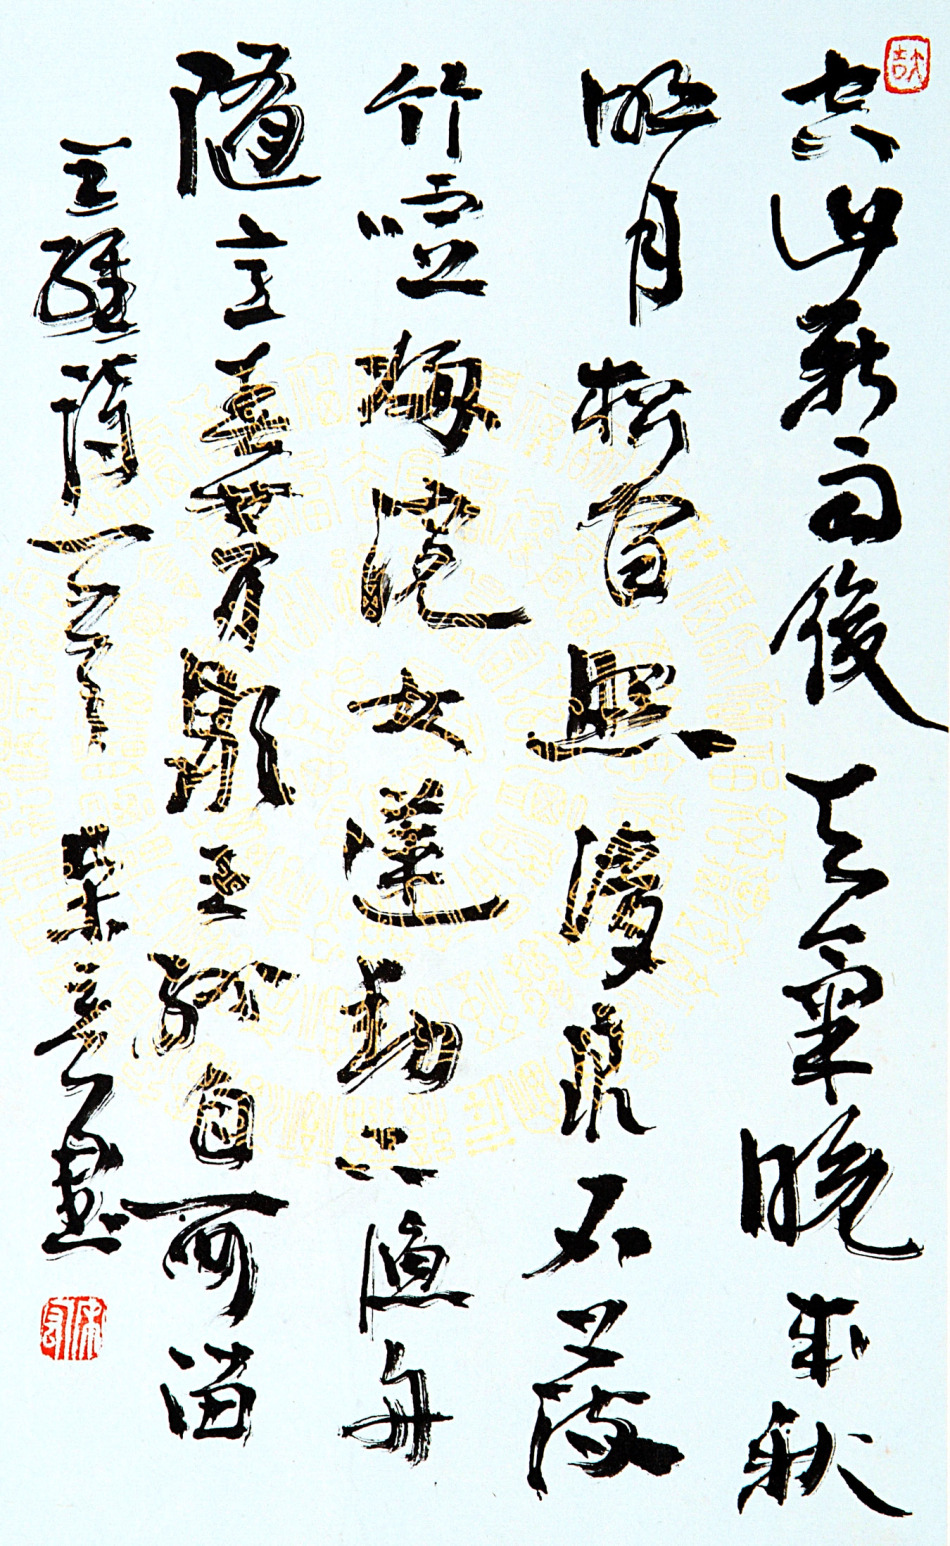 空山新雨後天氣晚來秋
明月松間照清泉石上流
竹喧歸浣女蓮動下漁舟
隨意春芳歇王孫自可留
王維詩一首 書